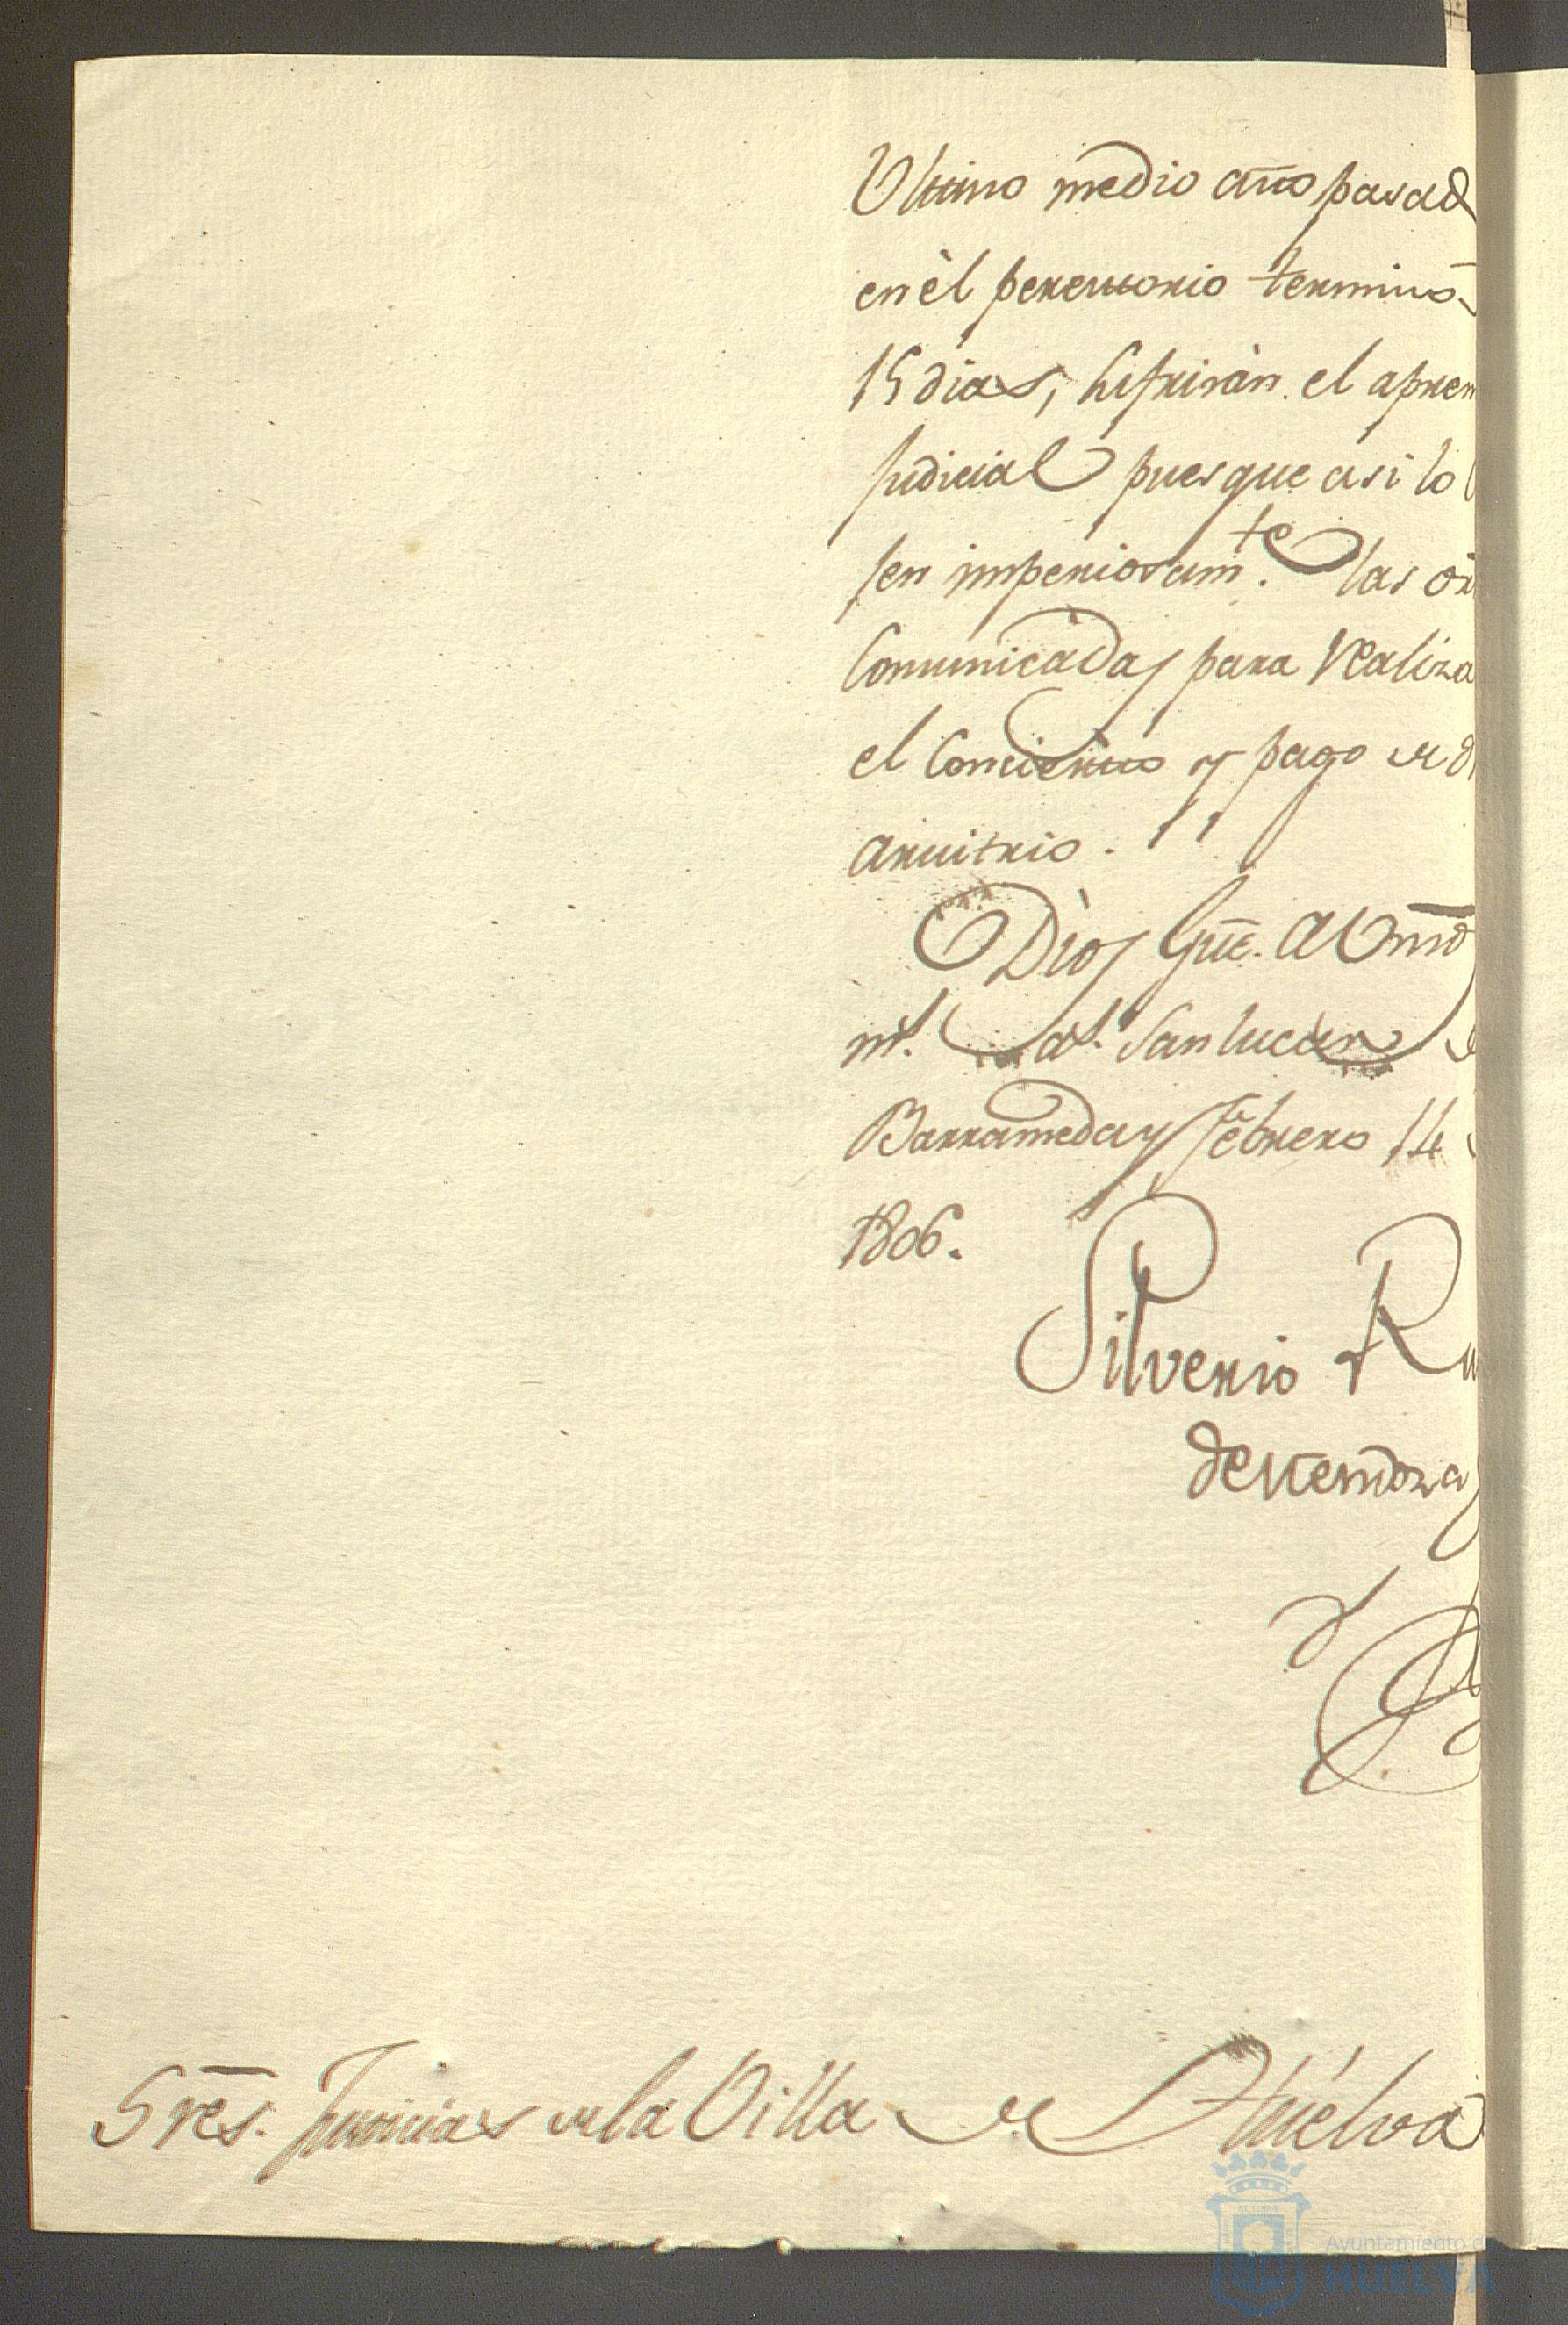 Ultimo medio año pasad
en èl perentorio termino
15 dias, sufriràn el aprem
judicial pues que asi lo
sen imperiosamte. las or
Comunicadas para realiza
el Concierto y pago de di
arvitrio.
Dios gūe. a Vmd
ms. as. San lucar
Barrameda y Febrero 14
1806.
Silverio Ru
de Mendoza
Sres. Justicias de la Villa de Huelva
Ayuntamiento d
HUELVA